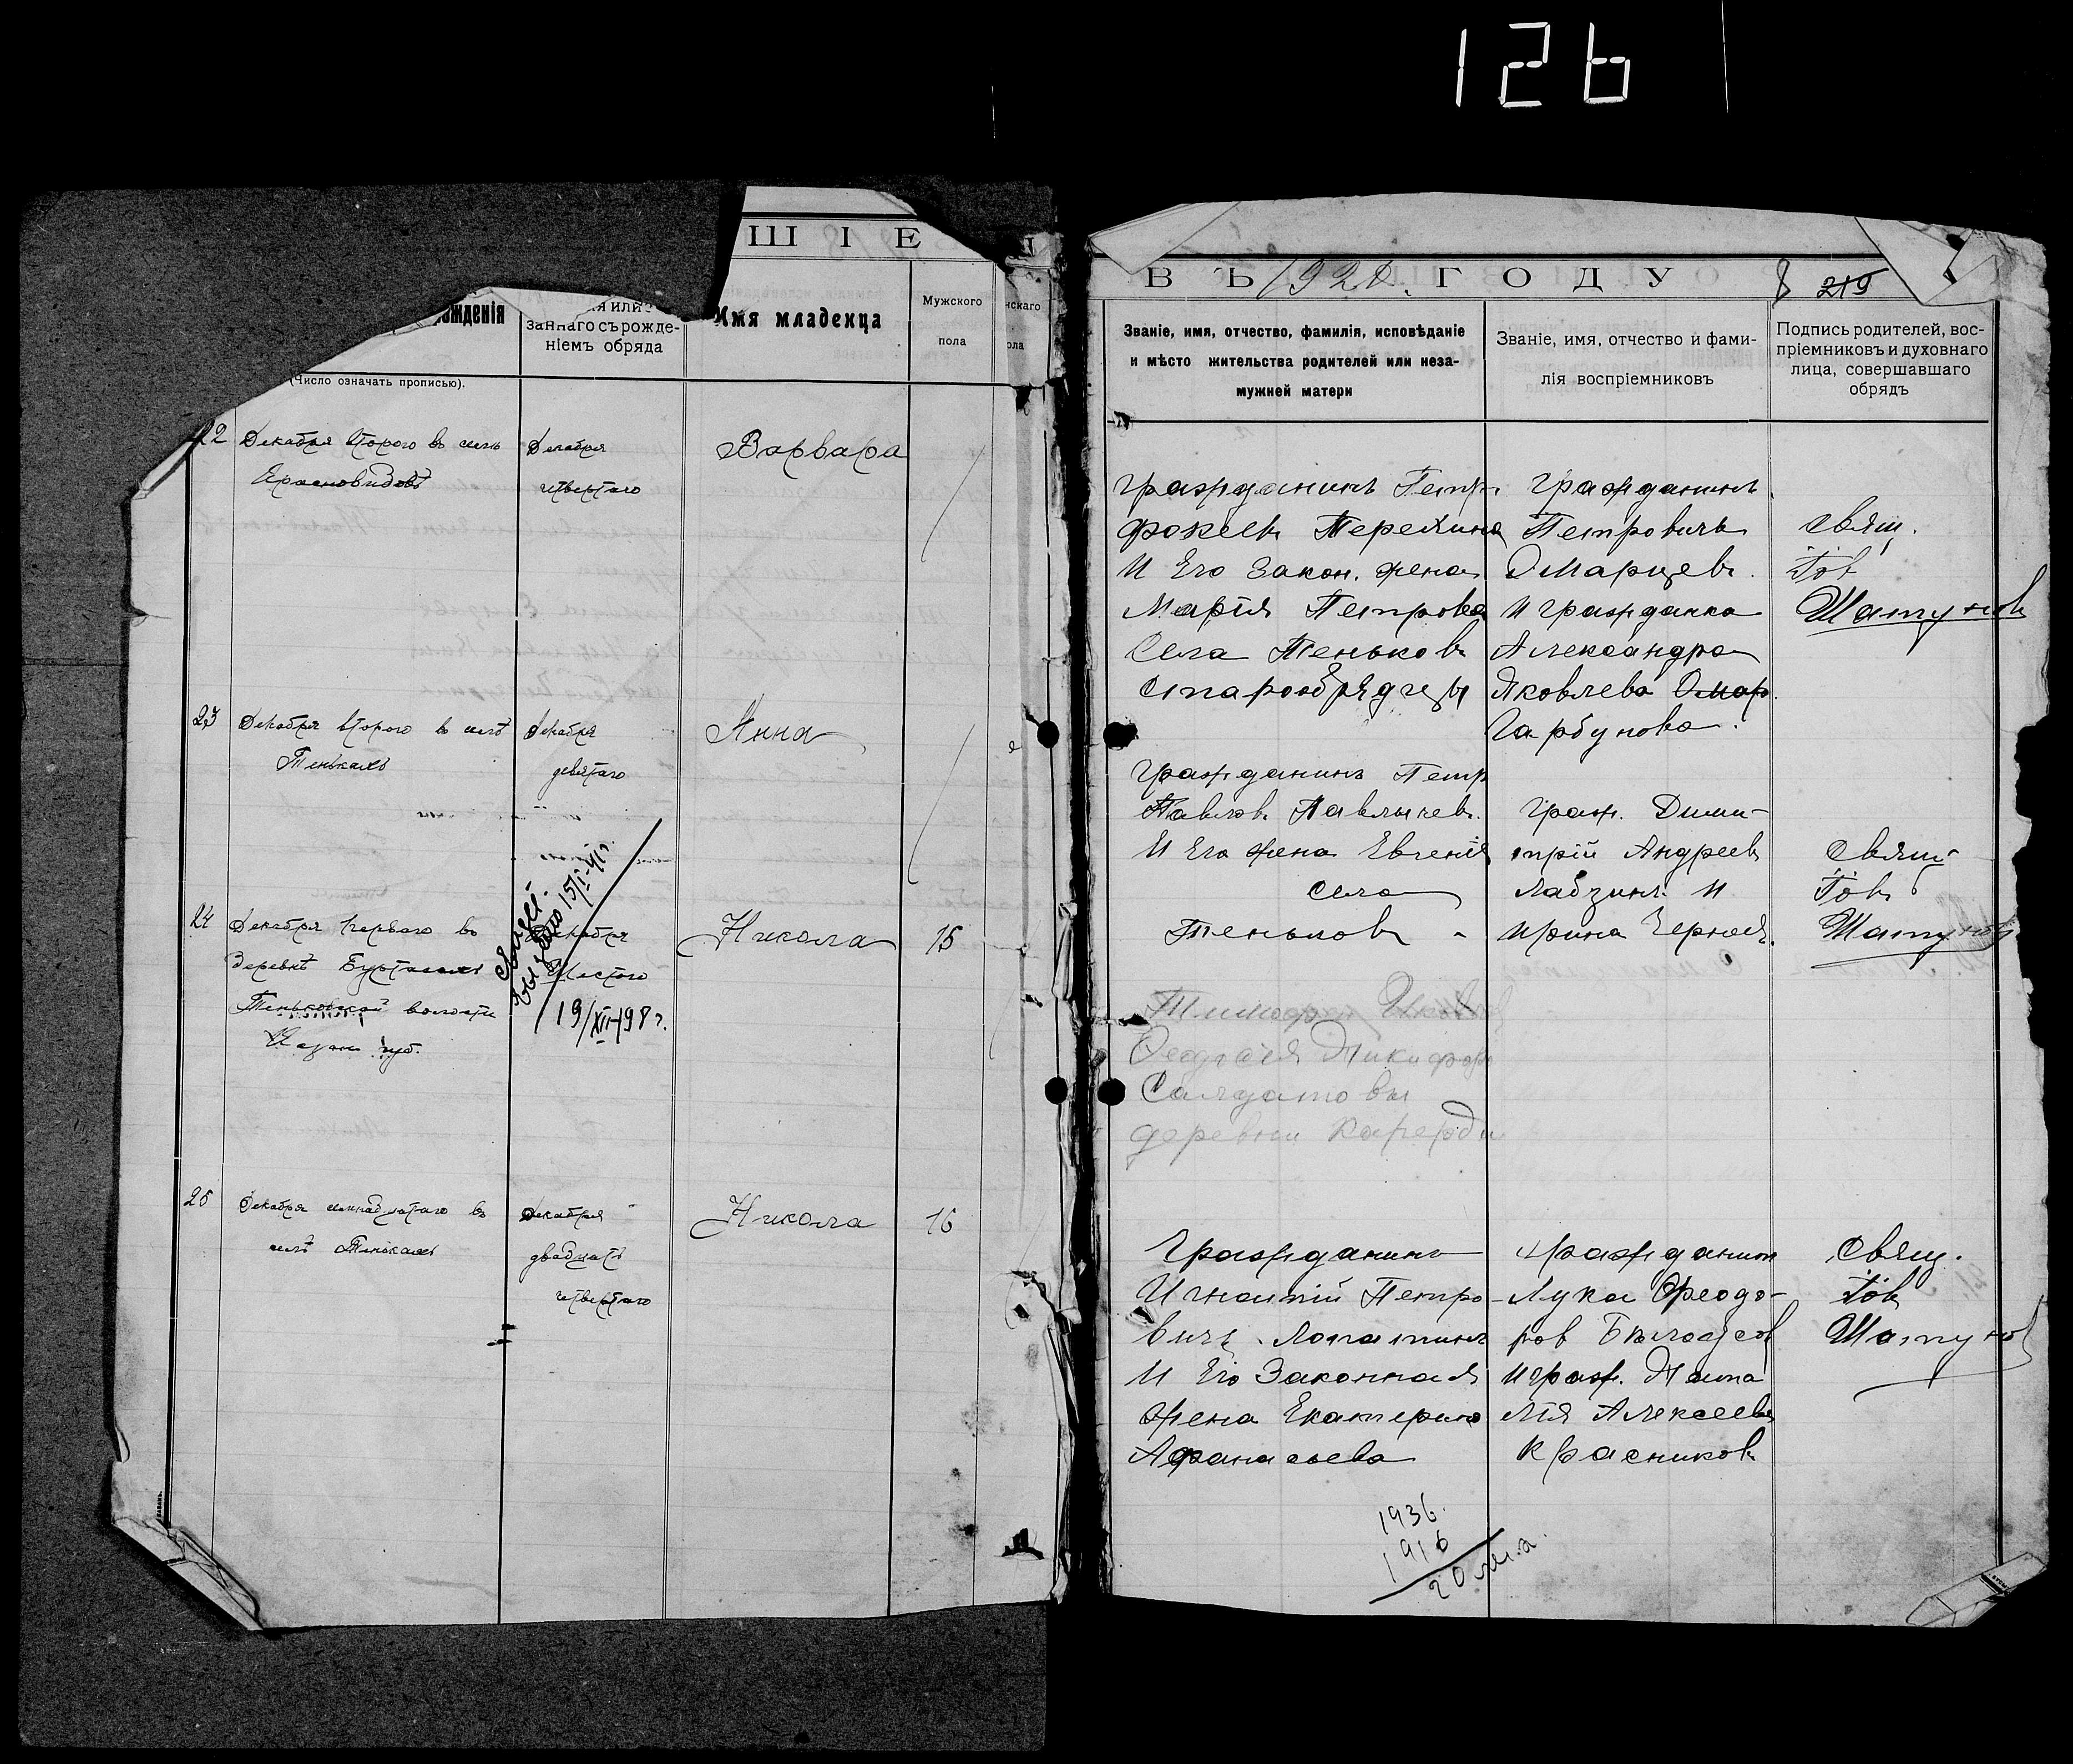 126
ШІЕ
ВЪ 1920. ГОДУ
8 219
ожденія
заннаго съ рожде-
ніемъ обряда
Имя младенца
Мужского
пола
нскаго
ола
(Число означать прописью).
Званіе, имя, отчество, фамилія, исповѣданіе
и мѣсто жительства родителей или неза-
мужней матери
Званіе, имя, отчество и фами-
лія воспріемниковъ
Подпись родителей, вос-
пріемниковъ и духовнаго
лица, совершавшаго
обрядъ
22
Декабря второго въ селѣ
Красновидовѣ
Декабря
четвертаго
Варвара
Гражданинъ Петр
Фокеев
И Его Закон. жена
Марія Петрова
Села Теньков
старообрядцы
Гражданинъ
Петровичъ
и гражданка
Александра
Яковлева
Гарбунова.
Свящ.
Іов
Шатунов
23
Декабря второго въ селѣ
Тенькахъ
Декабря
девятаго
Анна
Гражданинъ Петр
Павлов. Павлычев.
И Его жена Евгенія
села
Теньков
Граж. Дими-
трій Андреев
Ладзин. И
Ирина Черняев.
Свящ
Іов
Шатунов
24
Декабря перваго въ
деревнѣ Буртасахъ
Теньковской волости
Казан губ.
Декабря
Шестого
15/I-41г.
19/XII-198г.
Никола
15
Тимофей
Феодосія Никифор
Салдатовы
деревни
25
Декабря семнадцатаго въ
селѣ Тенькахъ
Декабря
двадцать
четвертаго
Никола
16
Гражданинъ
Игнатій Петро-
вичъ Лопатинъ
И Его Законная
Жена Екатерина
Афанасьева
гражданин
Лука Феодо-
ров Бѣлоусов
и граж. Ната
лія Алексеева
Красников
Свящ.
Іов
Шатунов
1936.
1916
20 лет.